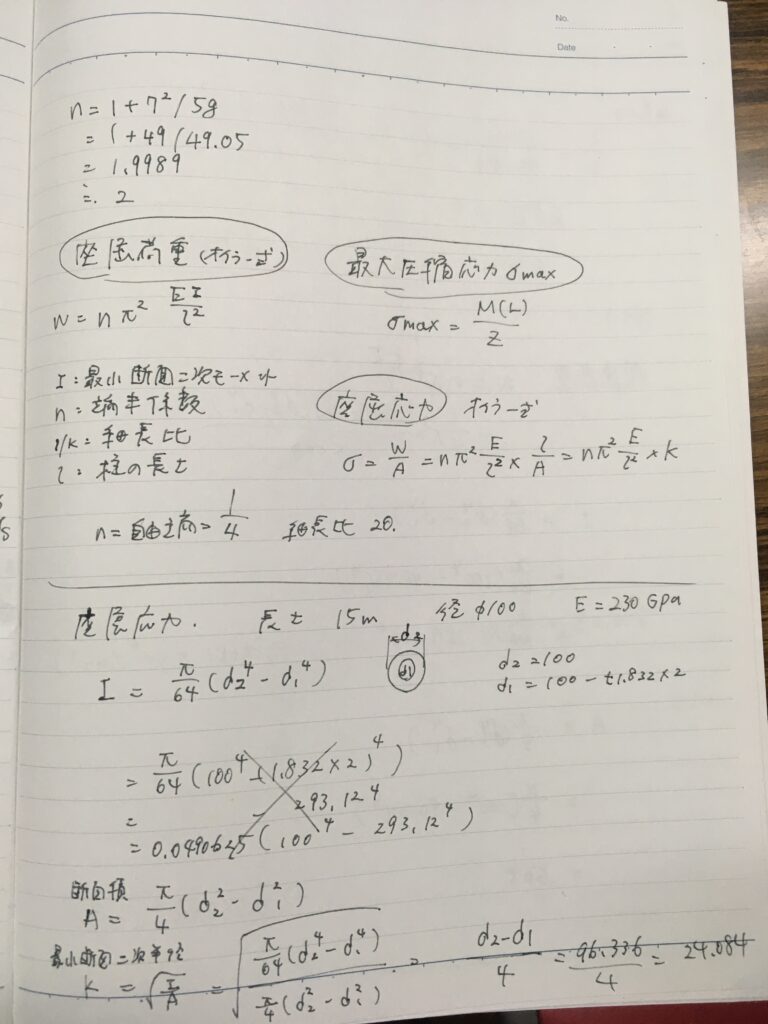 No.
Date
n = 1 + 7² / 5g
= 1 + 49 / 49.05
= 1.9989
≒ 2
座屈荷重 (オイラー式)
W = n π² EI/l²
最大圧縮応力 σmax
σmax = M(L)/Z
I : 最小断面二次モーメント
n : 端末係数
l/k = 細長比
l : 柱の長さ
座屈応力 オイラー式
σ = W/A = nπ² E/l² × I/A = nπ² E/l² × k
n = 自由端 = 1/4 細長比 20.
座屈応力. 長さ 15m 径 φ100 E = 230 GPa
I = π/64 (d2⁴ - d1⁴)
d2
d1
d2 = 100
d1 = 100 - t1.832×2
= π/64 (100⁴ - (1.832×2)⁴)
= - 293.12⁴
= 0.0490625 (100⁴ - 293.12⁴)
断面積
A = π/4 (d2² - d1²)
最小断面二次半径
k = √(I/A) = √(π/64 (d2⁴ - d1⁴) / π/4 (d2² - d1²)) = d2-d1/4 = 96.336/4 = 24.084